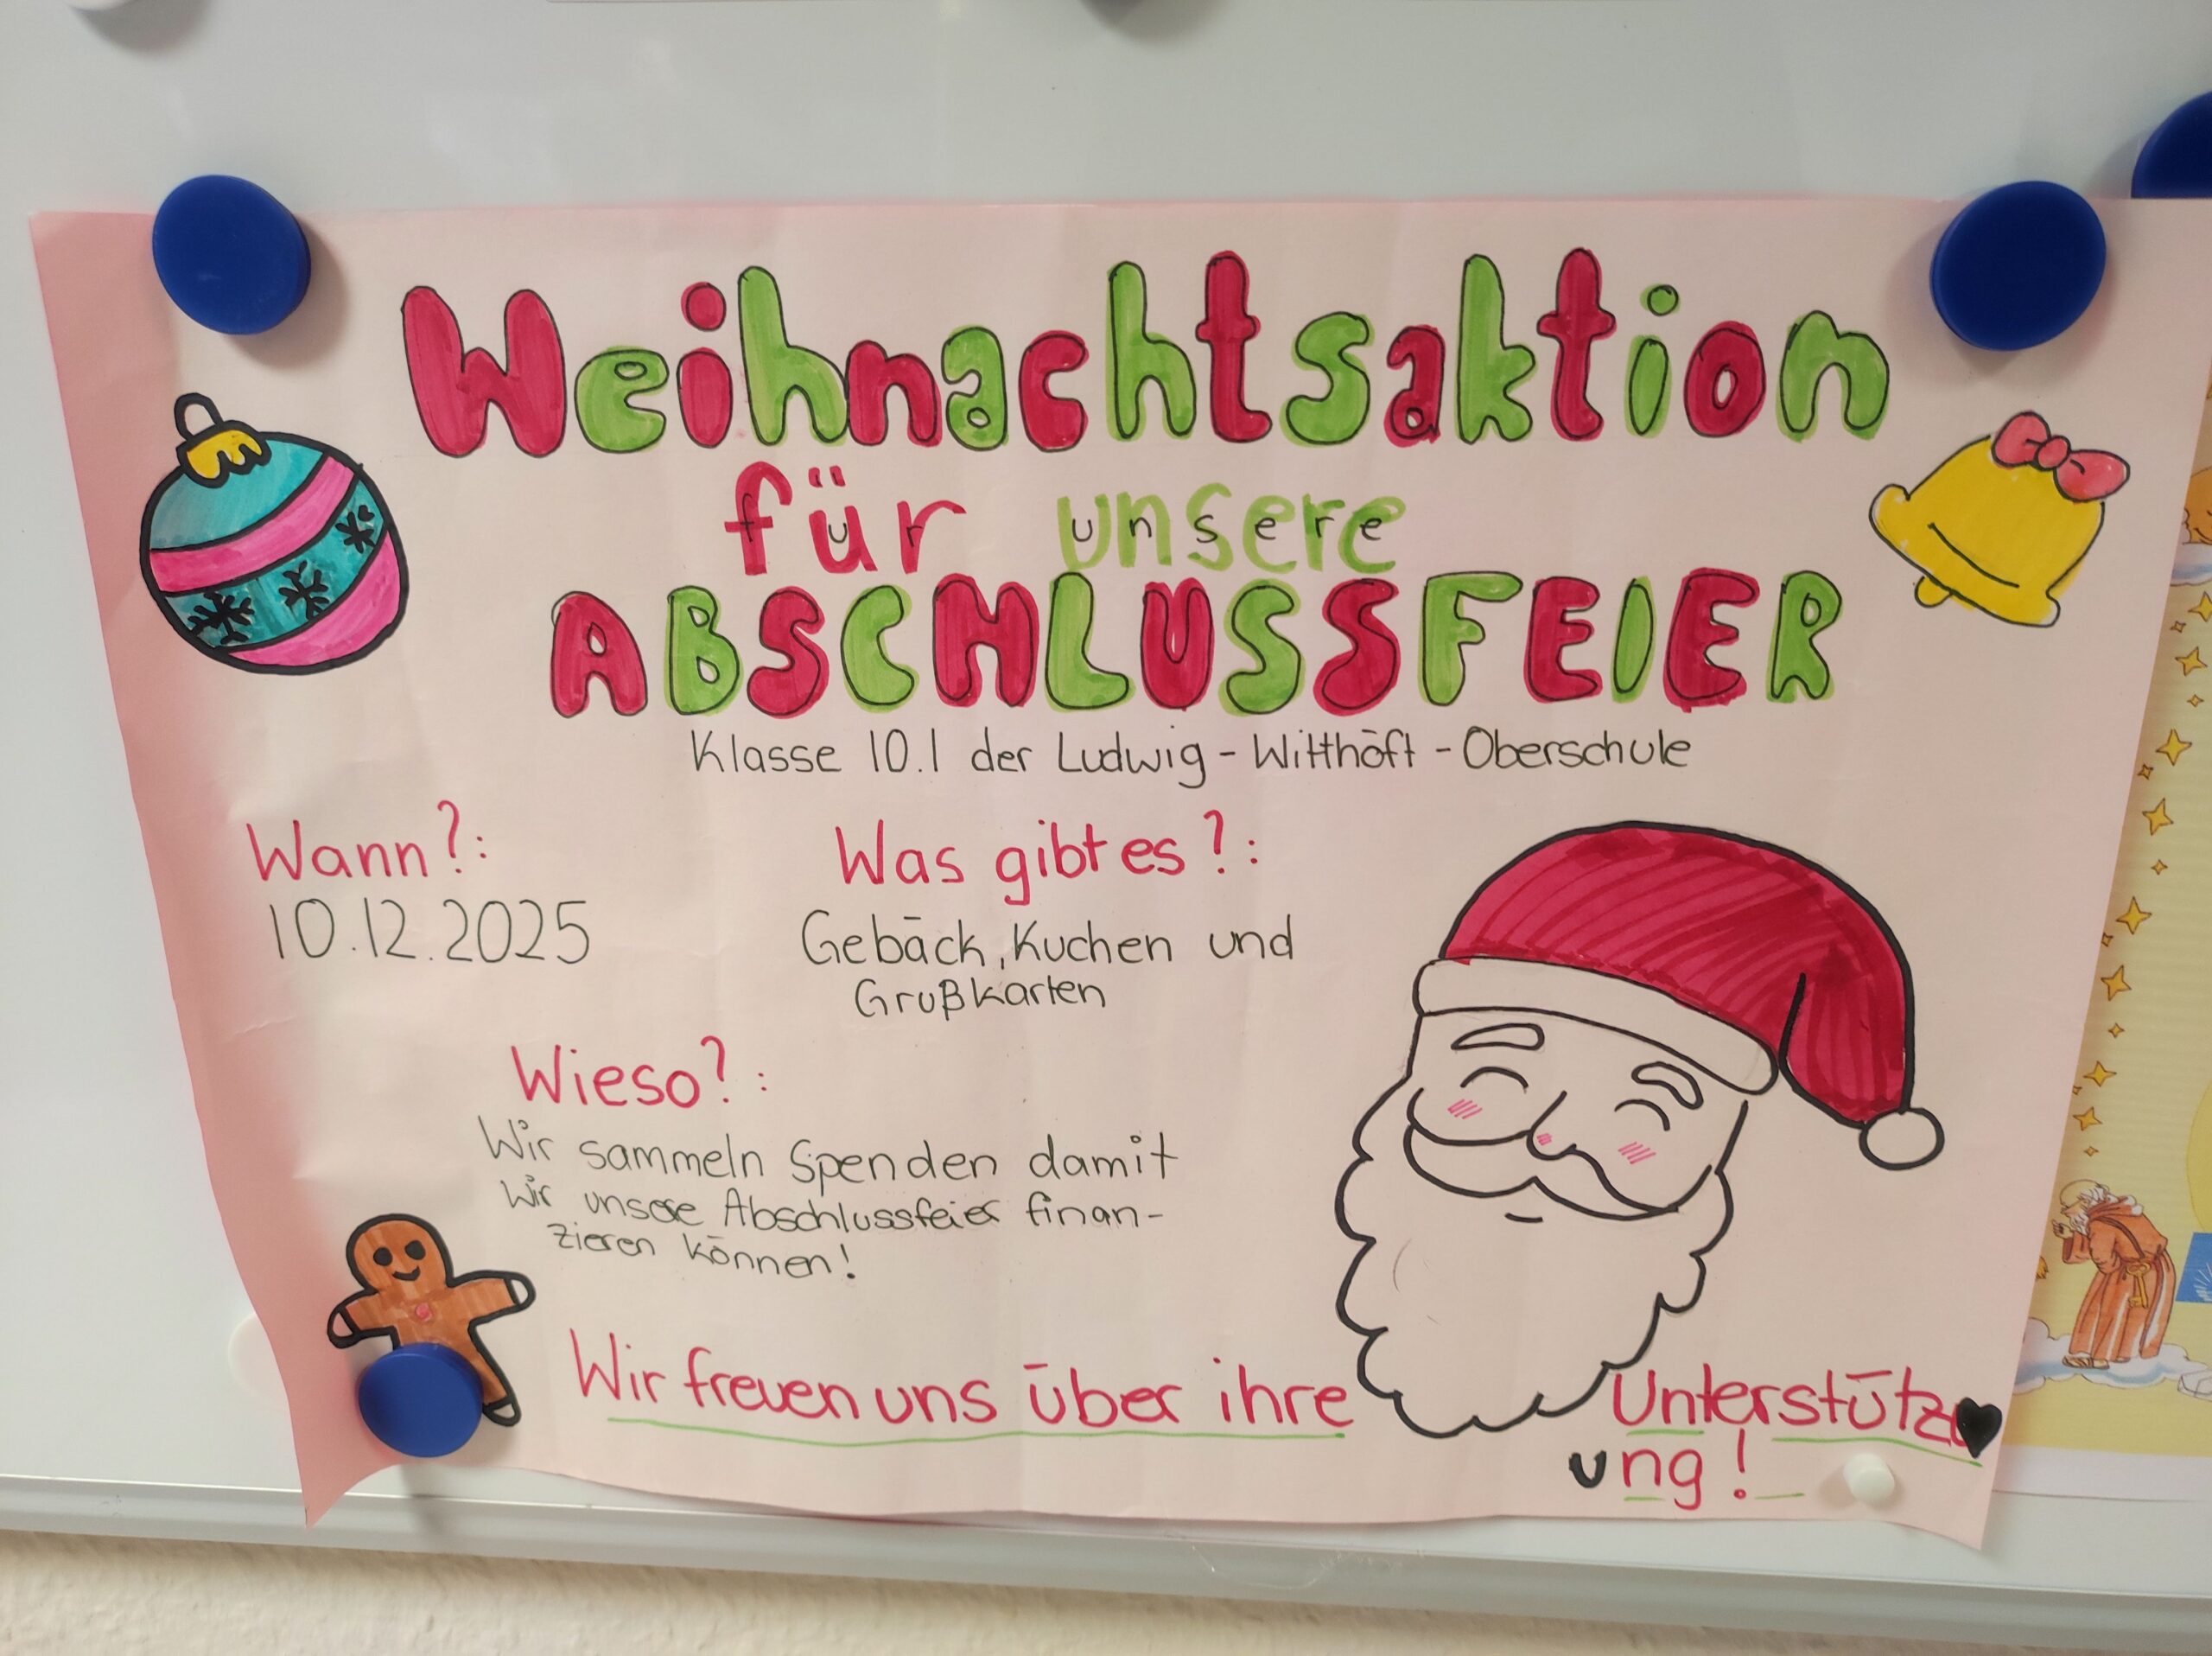 Weihnachtsaktion
für unsere
ABSCHLUSSFEIER
Klasse 10.1 der Ludwig-Witthöft-Oberschule
Wann?:
10.12.2025
Was gibt es?:
Gebäck, Kuchen und
Grußkarten
Wieso?:
Wir sammeln Spenden damit
Wir unsere Abschlussfeier finan-
zieren können!
Wir freuen uns über ihre Unterstütz
ung!